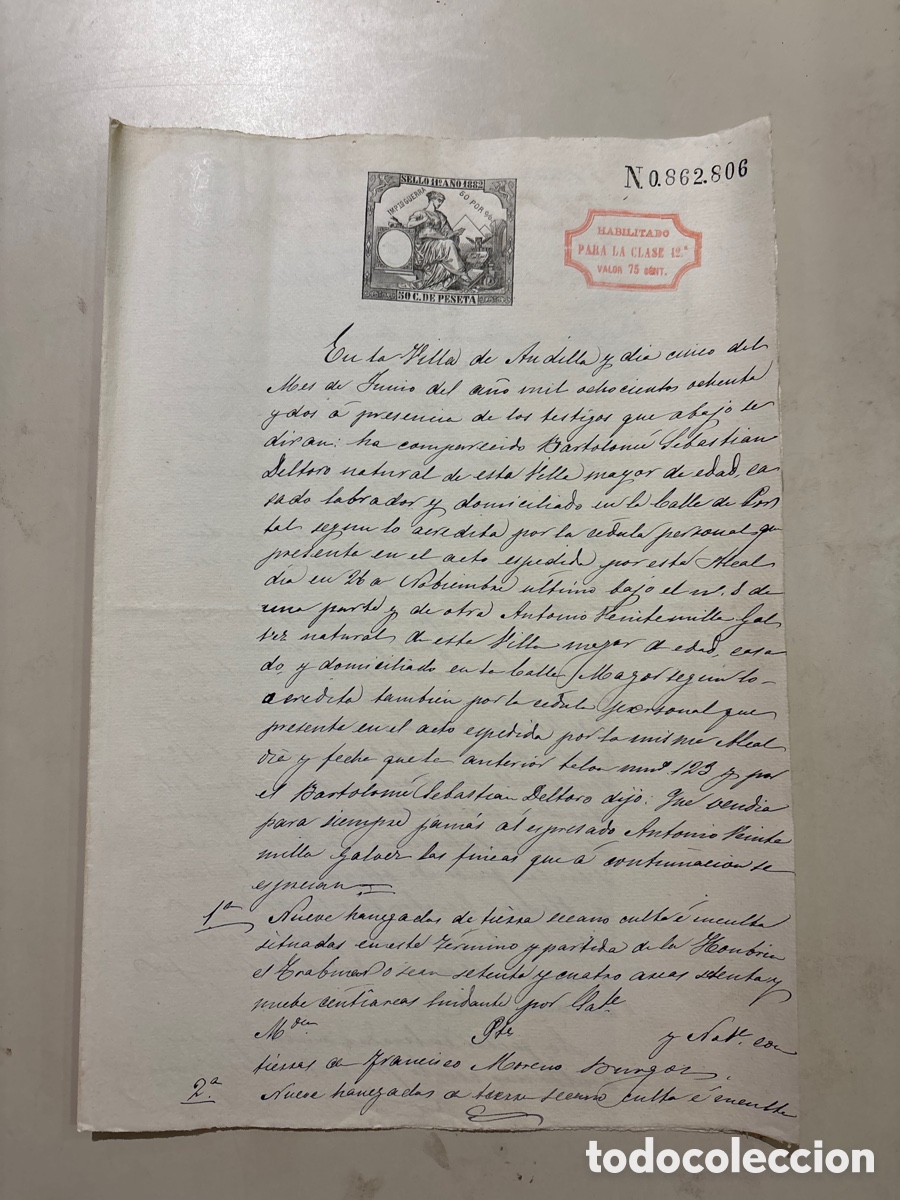 N. 0.862.806
SELLO 11º AÑO 1882
IMPTO GUERRA
50 POR %
50 C. DE PESETA
HABILITADO
PARA LA CLASE 12.ª
VALOR 75 CENT.
En la Villa de Andilla y dia cinco del
Mes de Junio del año mil ochocientos ochenta
y dos á presencia de los testigos que abajo se
diran: ha comparecido Bartolomé Sebastian
Deltoro natural de esta Villa mayor de edad, ca-
sado labrador y domiciliado en la Calle de Por
tal segun lo acredita por la cédula personal qe
presenta en el acto espedida por esta Alcal
dia en 26 a Nobiembre ultimo bajo el n. 8 de
una parte y de otra Antonio Veintemilla Gal
bez natural de esta Villa mayor de edad, casa
do, y domiciliado en la Calle Mayor segun lo
acredita tambien por la cedula personal que
presenta en el acto espedida por la misma Alcal
dia y fecha que la anterior talon num.º 123 y por
el Bartolomé Sebastian Deltoro dijo: Que vendia
para siempre jamás al espresado Antonio Veinte
milla Galvez las fincas que á continuacion se
espresan
1ª Nueve hanegadas de tierra secano culta é inculta
situadas en este término y partida de la
el o sean setenta y cuatro areas setenta y
nuebe centiareas lindante por Sale
M.dia Pte y Note. con
tierras de Francisco Moreno Burgos.
2ª Nueve hanegadas de tierra secano culta é inculta
todocoleccion
todocoleccion.net